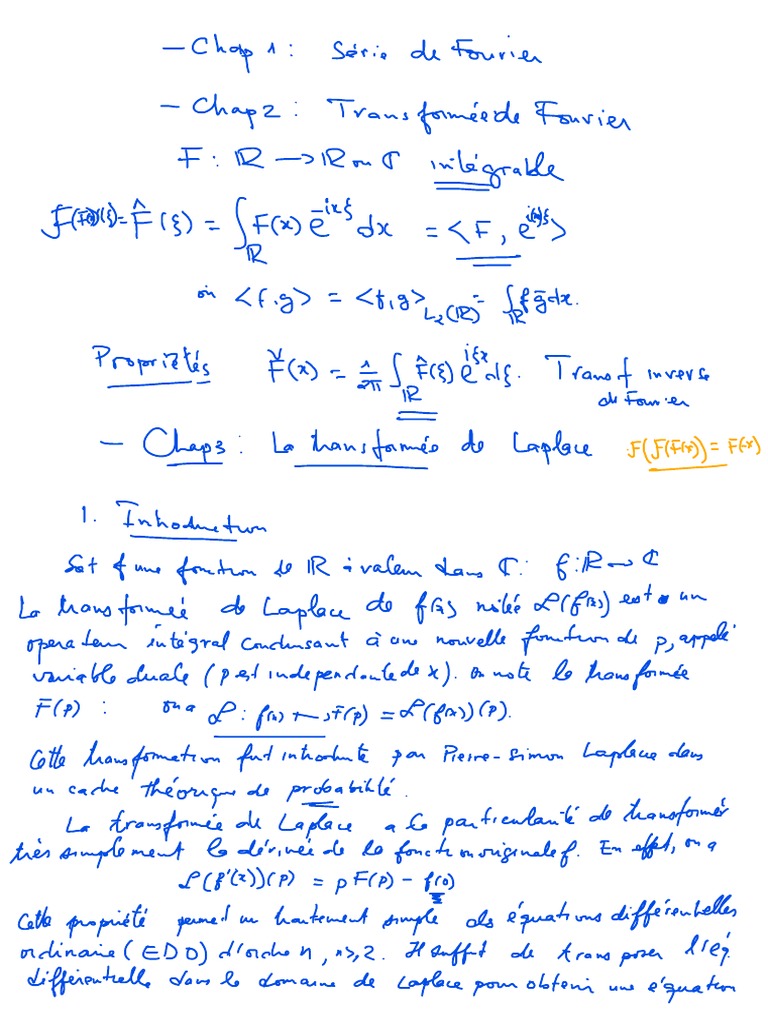 - Chap 1 : Série de Fourier
- Chap 2 : Transformée de Fourier
F : ℝ → ℝ ou ℂ intégrable
F(F(x))(ξ) = F̂(ξ) = ∫_ℝ F(x) e^{-ixξ} dx = <F, e^{i(x)ξ}>
où <f,g> = <f,g>_{L₂(ℝ)} = ∫_ℝ f ḡ dx.
Propriétés F̌(x) = 1/2π ∫_ℝ F̂(ξ) e^{iξx} dξ. Transf inverse
de Fourier
- Chap 3 : La transformée de Laplace F(F(F(x))) = F(-x)
1. Introduction
Soit f une fonction de ℝ à valeur dans ℂ : f : ℝ → ℂ
La transformée de Laplace de f(x) notée ℒ(f(x)) est un
operateur intégral conduisant à une nouvelle fonction de p, appelé
variable duale (p est independante de x). on note la transformée
F(p) : on a ℒ : f(x) ↦ F(p) = ℒ(f(x))(p).
Cette transformation fut introduite par Pierre-Simon Laplace dans
un cadre théorique de probabilité.
La transformée de Laplace a la particularité de transformer
très simplement la dérivée de la fonction originale f. En effet, on a
ℒ(f'(x))(p) = p F(p) - f(0)
Cette propriété permet un traitement simple des équations différentielles
ordinaire (EDO) d'ordre n, n ≥ 2. Il suffit de transposer l'éq.
différentielle dans le domaine de Laplace pour obtenir une équation